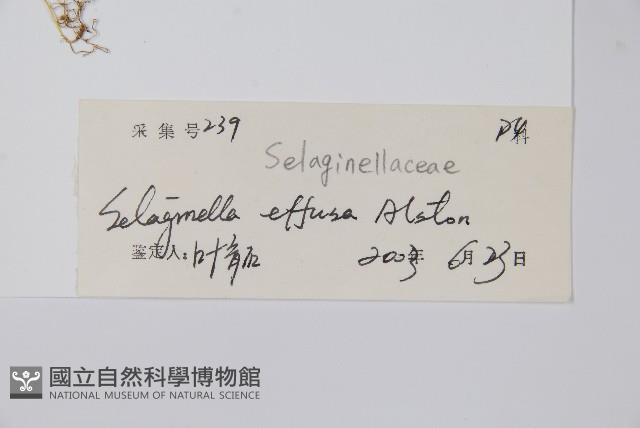 采集号 239 科
Selaginellaceae
Selaginella effusa Alston
鉴定人: 叶 2003年 6月 23日
國立自然科學博物館
NATIONAL MUSEUM OF NATURAL SCIENCE